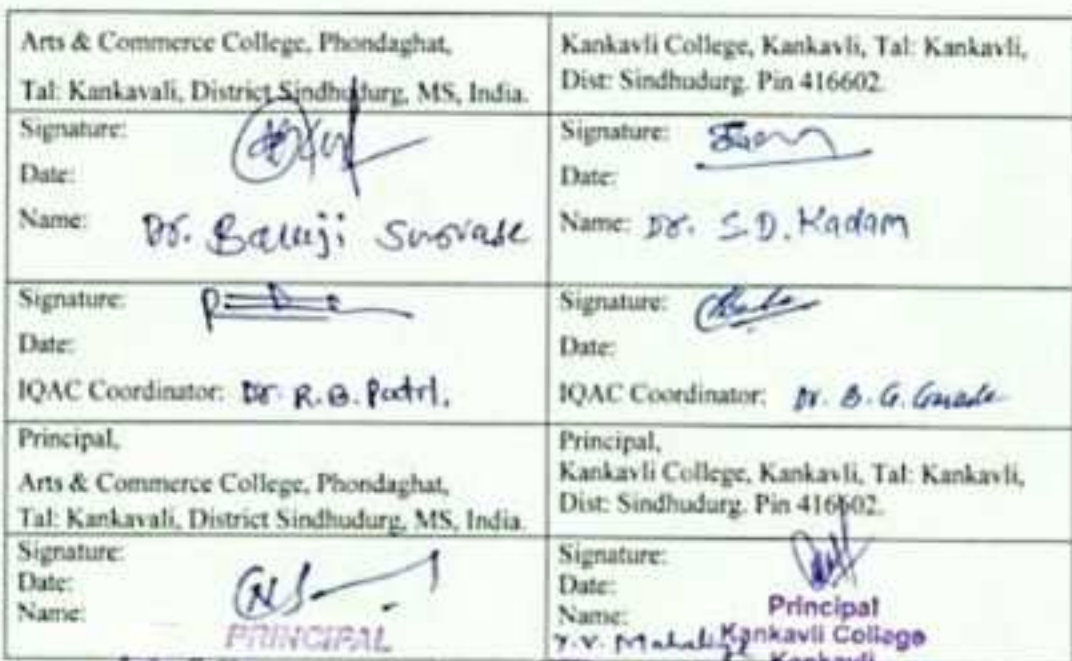 Arts & Commerce College, Phondaghat,
Tal: Kankavali, District Sindhudurg, MS, India.
Kankavli College, Kankavli, Tal: Kankavli,
Dist: Sindhudurg. Pin 416602.
Signature:
Date:
Name: Dr. Balaji Survase
Signature:
Date:
Name: Dr. S.D. Kadam
Signature:
Date:
IQAC Coordinator: Dr. R.B. Patil.
Signature:
Date:
IQAC Coordinator: Dr. B. G.
Principal,
Arts & Commerce College, Phondaghat,
Tal: Kankavali, District Sindhudurg, MS, India.
Principal,
Kankavli College, Kankavli, Tal: Kankavli,
Dist: Sindhudurg. Pin 416602.
Signature:
Date:
Name:
PRINCIPAL
Signature:
Date:
Name:
Y.V.
Principal
Kankavli College
Kankavli